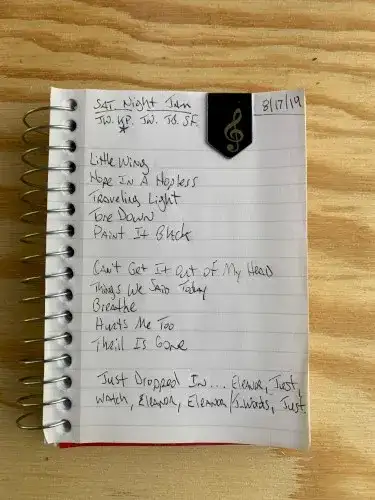 SAT. Night Jam
8/17/19
JW. KP. JW. JB. SF.
Little Wing
Hope In A Hopless
Traveling Light
Tone Down
Paint It Black
Can't Get It Out of My Head
Things We Said Today
Breathe
Hurts Me Too
Thrill Is Gone
Just Dropped In... Eleanor, Just,
Watch, Eleanor, Eleanor/J.Woods, Just